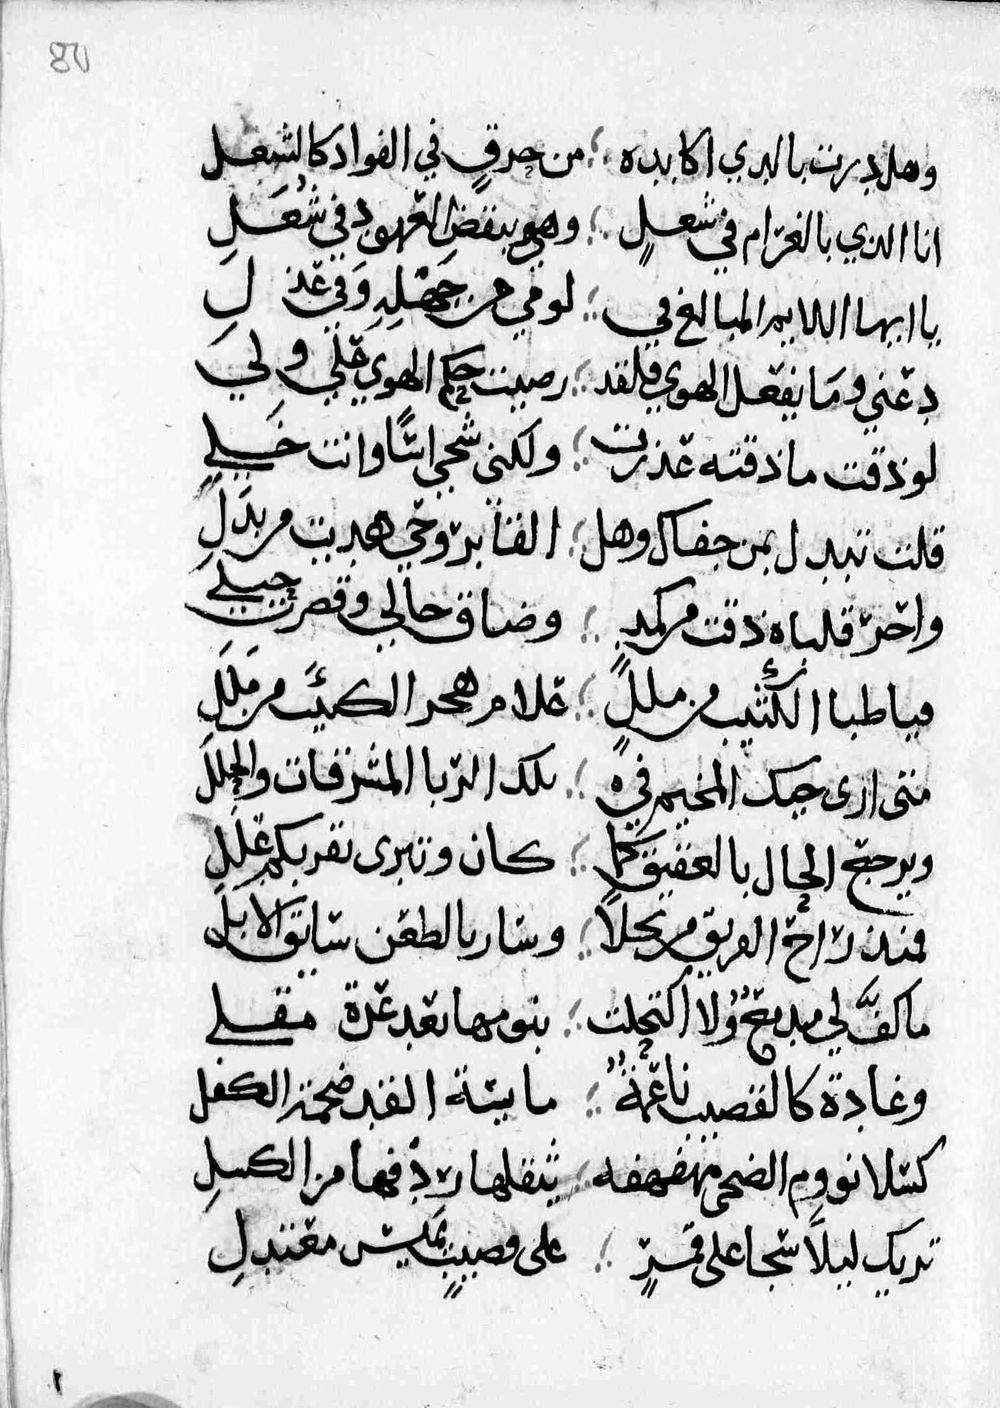 ٨٧
وهل درت بالذي اكابده من حرق في الفواد كالشعل
انا الذي بالغرام في شغل وهو بنقض العهود في شُغَلِ
يا ايها اللايم المبالغ في لومي من جَهْلِهِ وَفي عَذَلِ
دعني وما يفعل الهوي فلقد رضيت حكم الهوي علي ولي
لو ذقت ما ذقته عذرت ولكني شجي انّا وانت خَلي
قلت تبدل بمن جفاك وهل الفا بروحي هديت من بدَلِ
واحرّ قلباه ذقت من كمد وضاق حالي وقصرت حيلي
فيا ظبا الكثيب من مللٍ علام هجر الكئيب من مَلَلِ
متى ارى حيك المخيم في تلك الربا المشرفات والحلل
ويرجع الحال بالعقيق كما كان وتبرى بقربكم عللِ
فمنذ راح الفريق مرتحلاً وسار بالظعن سايق الابل
ما كفَّ لي مدمعٌ ولا اكتحلت بنومها بعد غدة مقلي
وغادة كالقضيب ناعمةٌ مايسة القد ضخمة الكفل
كسلا نووم الضحى مهفهفه يثقلها ردفها من الكسلِ
تريك ليلاً سجا على قمرٍ على قضيبٍ يميس معتدلِ